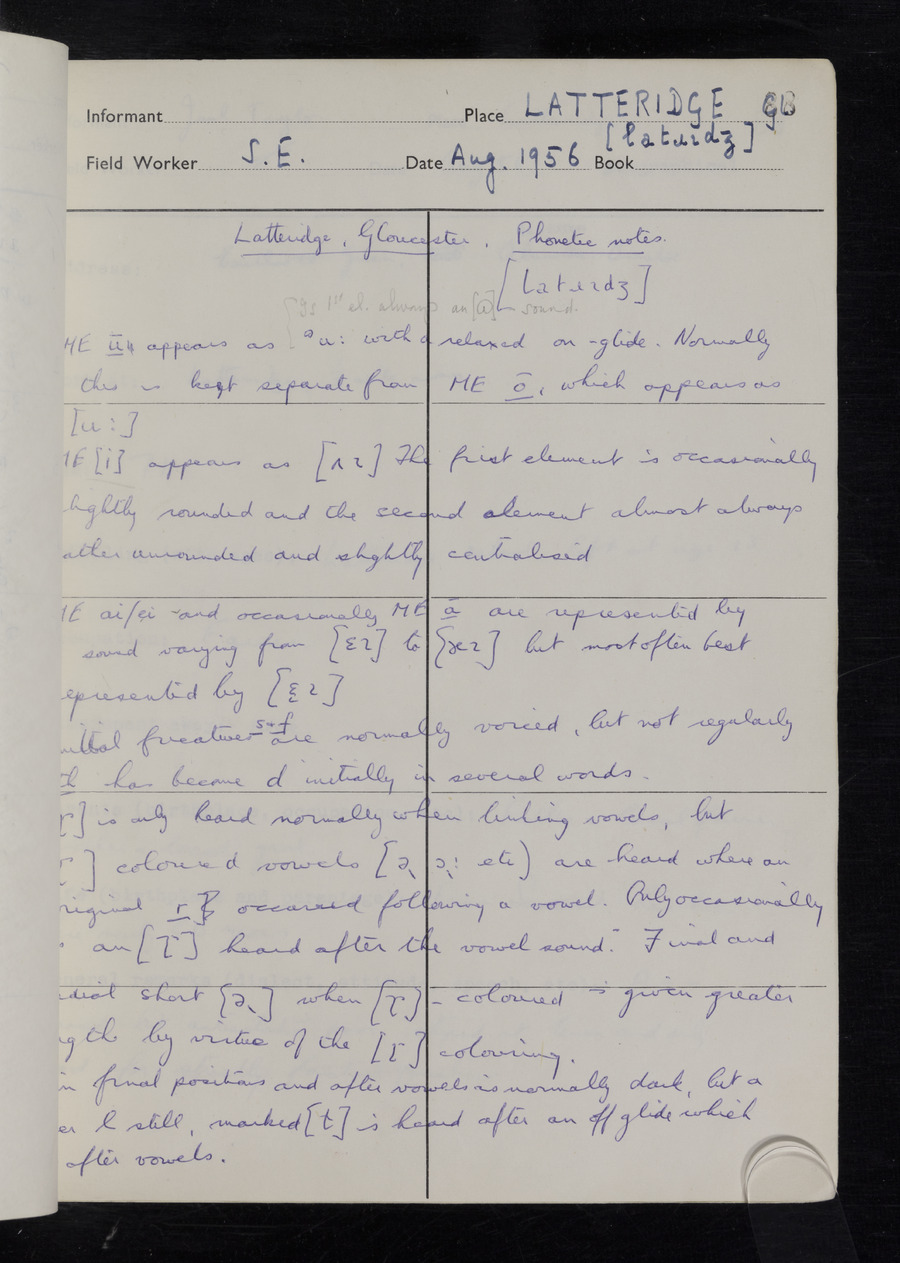 Informant Place LATTERIDGE
[latɹɪdʒ]
Field Worker S.E. Date Aug. 1956 Book
Latteridge, Gloucester. Phonetic notes.
[latɹɪdʒ]
Is 1st el. always an [ə] - sound.
ME appears as ᵊu: with a relaxed on-glide. Normally
this is kept separate from ME ō, which appears as
[u:]
ME [i] appears as [ʌɪ] The first element is occasionally
lightly rounded and the second element almost always
ather unrounded and slightly centralised
ME ai/ei and occasionally ME ā are represented by
sound varying from [ɛɪ] to [æɪ] but most often best
epresented by [ɛ̞ɪ]
nitial fricatives s+f are normally voiced, but not regularly
th has become d initially in several words.
[ɽ] is only heard normally when linking vowels, but
] coloured vowels [ə˞, ɔ˞: etc] are heard where an
riginal r occurred following a vowel. Only occasionally
an [ɽ] heard after the vowel sound. Final and
edial short [ə˞] when [ɽ]-coloured is given greater
ngth by virtue of the [ɽ] colouring.
in final positions and after vowels is normally dark, but a
er l still, marked [ɫ] is heard after an off glide which
after vowels.